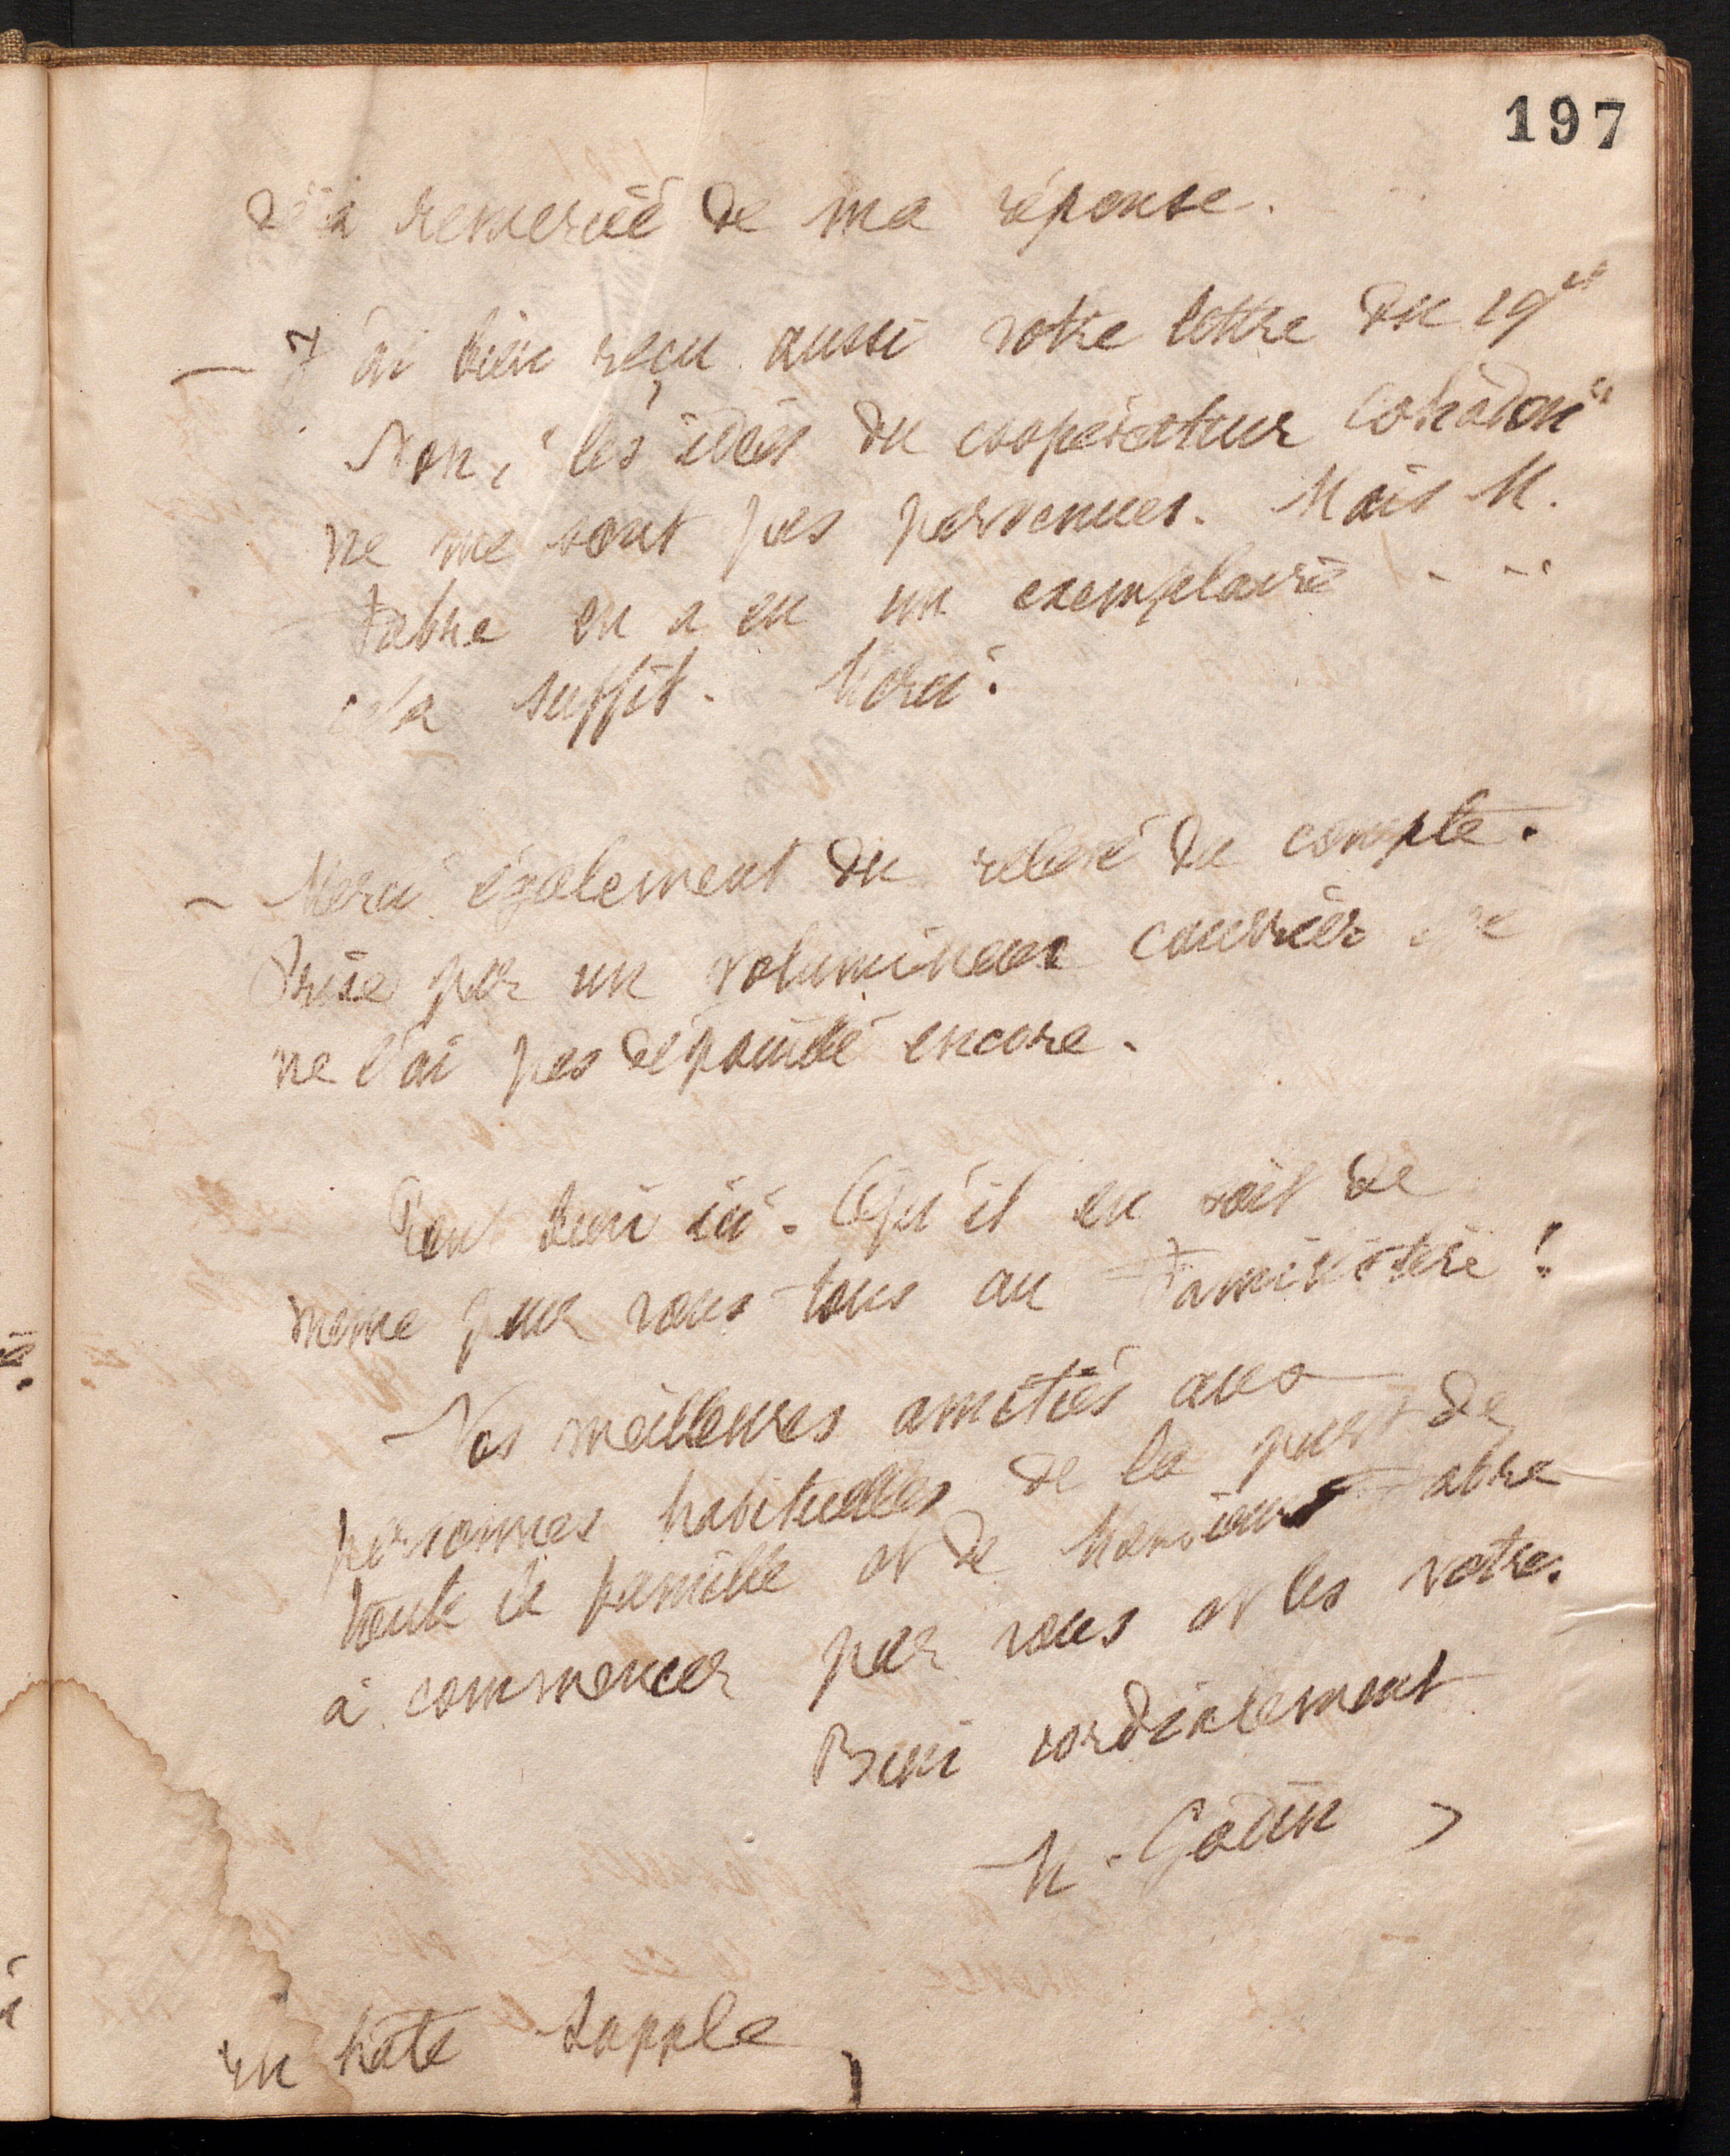 197
déjà remercié de ma réponse.
— J'ai bien reçu aussi votre lettre du 19 ct
Non, "les idées du coopérateur Cohadon"
ne me sont pas parvenues. Mais M.
Fabre en a eu un exemplaire ...
cela suffit. Merci.
— Merci également du relevé de compte.
Prise par un volumineux courrier je
ne l'ai pas dépouillé encore.
Tout bien ici. Qu'il en soit de
même pour vous tous au Familistère !
Nos meilleures amitiés aux
personnes habituelles de la part de
toute la famille et de Monsieur Fabre
à commencer par vous et les vôtres.
Bien cordialement
M. Godin
en hâte